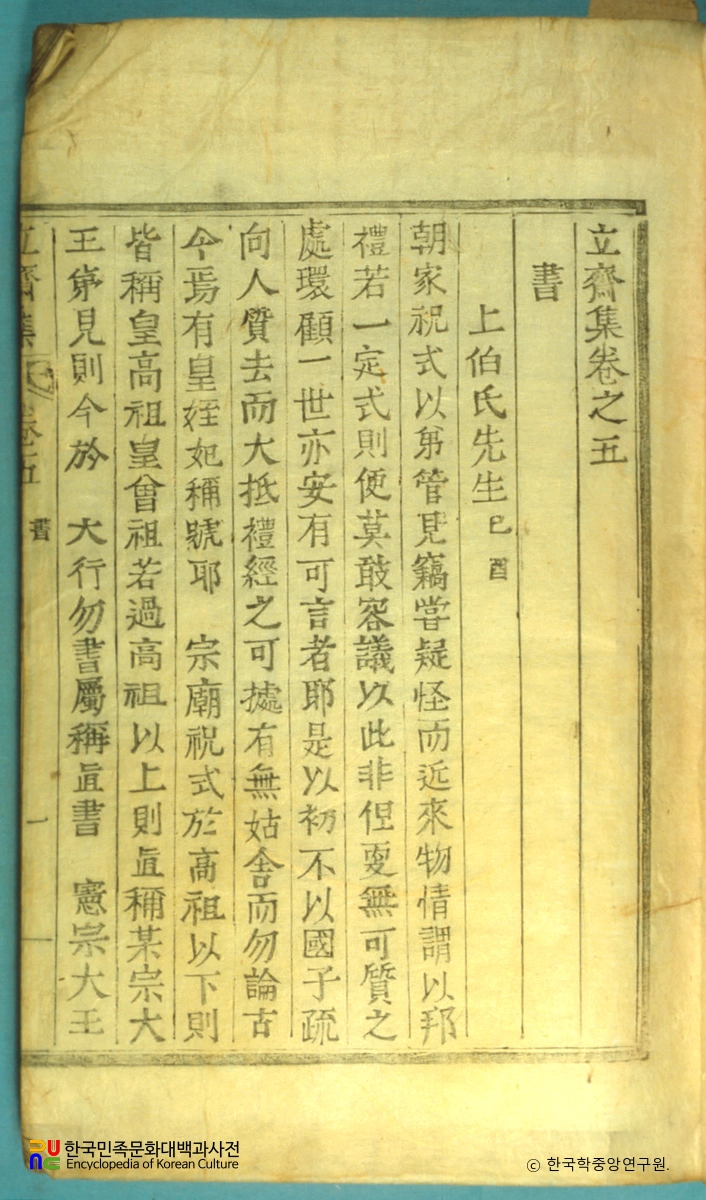 立齋集卷之五
書
上伯氏先生 己酉
朝家祝式以弟管見竊甞疑怪而近來物情謂以邦
禮若一定式則便莫敢容議以此非但更無可質之
處環顧一世亦安有可言者耶是以初不以國子疏
向人質去而大抵禮經之可據有無姑舍而勿論古
今焉有皇姪妃稱號耶 宗廟祝式於高祖以下則
皆稱皇高祖皇曾祖若過高祖以上則直稱某宗大
王弟見則今於 大行勿書屬稱直書 憲宗大王
立齋集 卷五 書 一
한국민족문화대백과사전
Encyclopedia of Korean Culture
ⓒ 한국학중앙연구원.